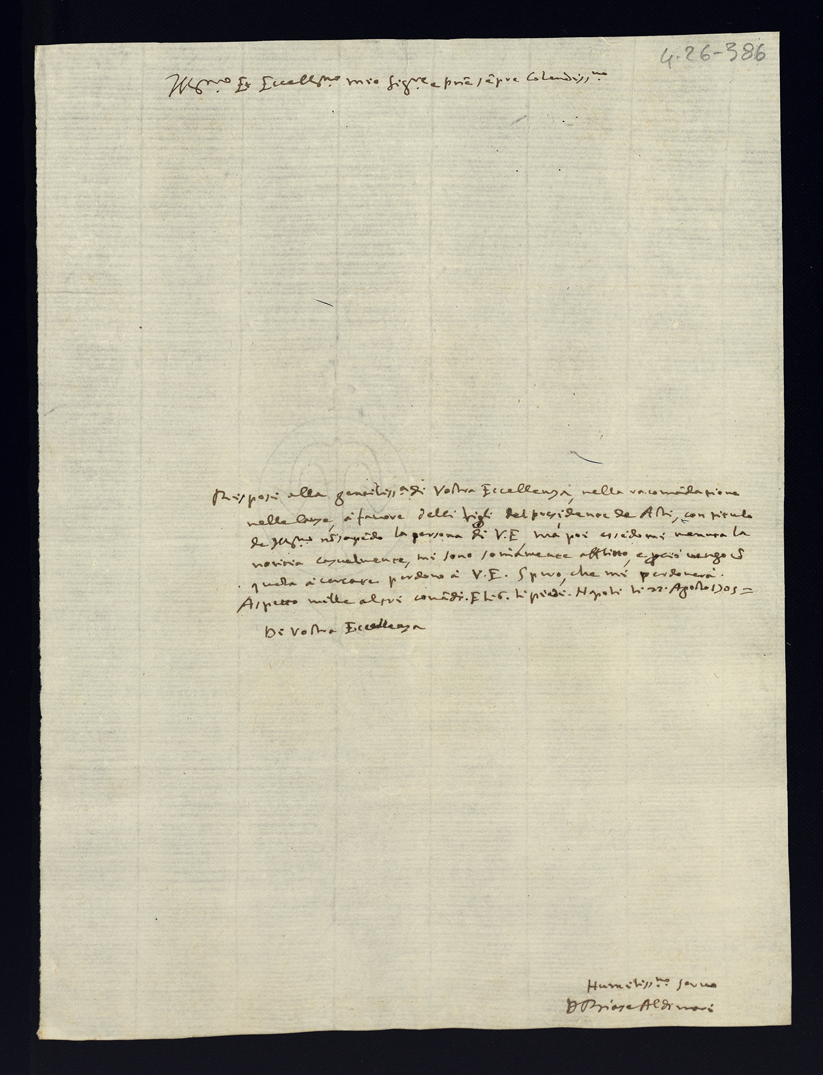 4.26-386
Ill.mo Et Eccell.mo mio Sig.re e prīe sēpre Colendiss.mo
Risposi alla gentiliss.a di Vostra Eccellenza, nella racomādatione
nella causa, à favore delli figli del presidente de Asti, con titulo
de Ill.mo nō sapēdo la persona di V.E, mà poi essēdomi venuta la
notitia casualmente, mi sono somāmente afflitto, e però vengo cō
questa à cercare perdono à V.E. Spero, che mi perdonerà.
Aspetto mille altri comādi. Et li piedi. Napoli li 22. Agosto 1705=
Di Vostra Eccellenza
Humiliss.mo servo
D Biase Aldimari